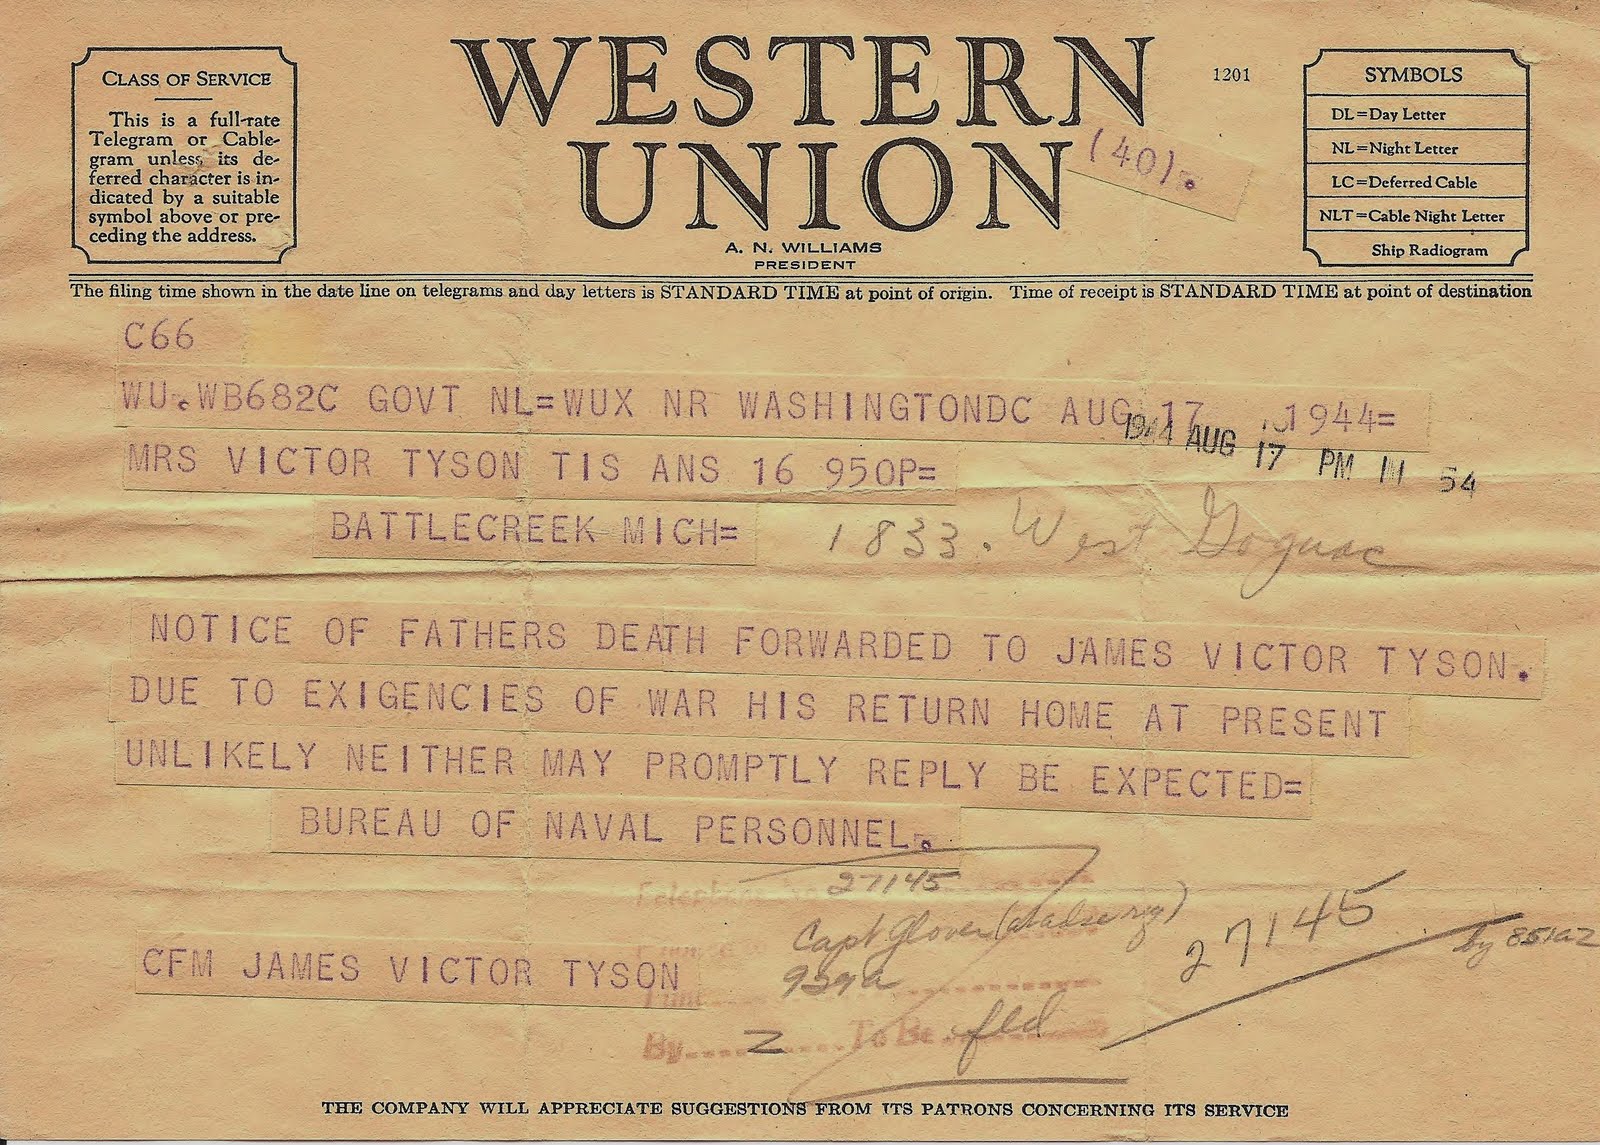 CLASS OF SERVICE
This is a full-rate
Telegram or Cable-
gram unless its de-
ferred character is in-
dicated by a suitable
symbol above or pre-
ceding the address.
WESTERN
UNION
A. N. WILLIAMS
PRESIDENT
1201
(40).
SYMBOLS
DL=Day Letter
NL=Night Letter
LC=Deferred Cable
NLT=Cable Night Letter
Ship Radiogram
The filing time shown in the date line on telegrams and day letters is STANDARD TIME at point of origin. Time of receipt is STANDARD TIME at point of destination
C66
WU.WB682C GOVT NL=WUX NR WASHINGTONDC AUG 17 1944=
1944 AUG 17 PM 54
MRS VICTOR TYSON TIS ANS 16 950P=
BATTLECREEK MICH=
1833. West Goguac
NOTICE OF FATHERS DEATH FORWARDED TO JAMES VICTOR TYSON.
DUE TO EXIGENCIES OF WAR HIS RETURN HOME AT PRESENT
UNLIKELY NEITHER MAY PROMPTLY REPLY BE EXPECTED=
BUREAU OF NAVAL PERSONNEL.
27145
Capt Glover
27145
CFM JAMES VICTOR TYSON
By Z To Be fld
THE COMPANY WILL APPRECIATE SUGGESTIONS FROM ITS PATRONS CONCERNING ITS SERVICE